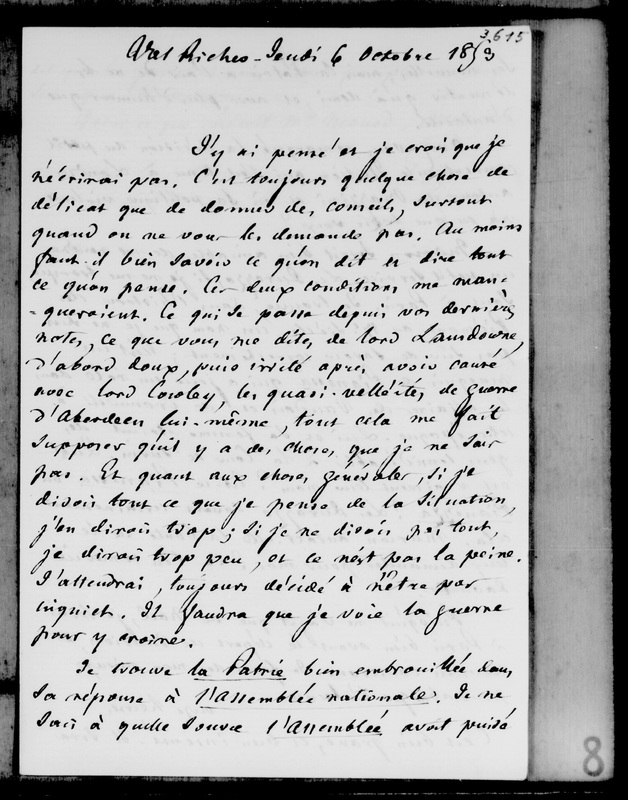 3615
Val Richer - Jeudi 6 Octobre 1853
J'y ai pensé et je crois que je
n'écrirai pas. C'est toujours quelque chose de
délicat que de donner des conseils, surtout
quand on ne vous les demande pas. Au moins
faut-il bien savoir ce qu'on dit et dire tout
ce qu'on pense. Ces deux conditions me man-
-queraient. Ce qui se passe depuis vos dernières
notes, ce que vous me dites de lord Lansdowne,
d'abord doux, puis irrité après avoir causé
avec lord Cowley, les quasi-velléités de guerre
d'Aberdeen lui-même, tout cela me fait
supposer qu'il y a des choses que je ne sais
pas. Et quant aux choses générales, si je
disois tout ce que je pense de la situation,
j'en dirois trop; si je ne disois pas tout,
je dirois trop peu, et ce n'est pas la peine.
J'attendrai, toujours décidé à n'être pas
inquiet. Il faudra que je voie la guerre
pour y croire.
Je trouve la Patrie bien embrouillée dans
sa réponse à l'assemblée nationale. Je ne
sais à quelle source l'Assemblée avoit puisé
8